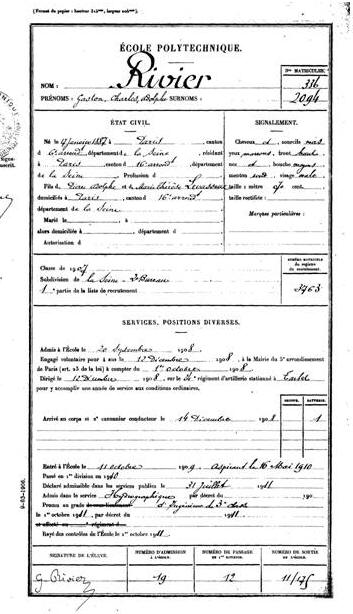 (Format du papier : hauteur
ÉCOLE POLYTECHNIQUE.
Nos MATRICULES
NOM : Rivier
316
PRÉNOMS : Gaston, Charles, Adolphe SURNOMS :
2094
ÉTAT CIVIL.
SIGNALEMENT.
Né le 17 janvier 1887 à Paris, canton
d arrondt, département de la Seine, résidant
à Paris, canton d 16e arrondt, département
de la Seine, Profession d
Fils de Adolphe et de Marie Thérèse Levasseur
domiciliés à Paris, canton 16e arrondt,
département de la Seine
Marié le
alors domiciliée à , département d
Autorisation d
Cheveux et sourcils
yeux marrons, front
nez , bouche
menton rond, visage ovale
taille : mètre cent.
taille rectifiée :
Marques particulières :
Classe de 1907
Subdivision de la Seine
1 partie de la liste de recrutement
NUMÉRO MATRICULE
du registre
du recrutement.
3763
SERVICES, POSITIONS DIVERSES.
Admis à l'École le 20 Septembre 1908
Engagé volontaire pour 4 ans le 12 Décembre 1908, à la Mairie du 5e arrondissement
de Paris (art. 23 de la loi) à compter du 1er octobre 1908.
Dirigé le 12 Décembre 1908, sur le régiment d'artillerie stationné à Tarbes
pour y accomplir une année de service aux conditions ordinaires.
BATTERIE.
Arrivé au corps et 2e canonnier conducteur le 14 Décembre 1908
1
Entré à l'École le 11 octobre 1909 Aspirant le 16 Mai 1910
Passé en 1re division en 1910
Déclaré admissible dans les services publics le 31 juillet 1911
Admis dans le service Hydrographique par décret du 190
Promu au grade d'Ingénieur de 3e classe
le 1er octobre 1911, par décret du 1911
Rayé des contrôles de l'École le 1er octobre 1911.
SIGNATURE DE L'ÉLÈVE.
NUMÉRO D'ADMISSION
à l'École
NUMÉRO DE PASSAGE
en 1re division
NUMÉRO DE SORTIE
de l'École
G. Rivier
19
12
11/175
9-83-1906.